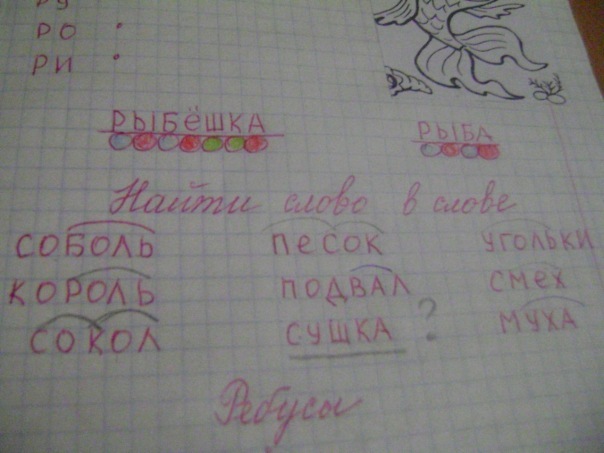 РУ
РО
РИ
РЫБЁШКА РЫБА
Найти слово в слове
СОБОЛЬ ПЕСОК УГОЛЬКИ
КОРОЛЬ ПОДВАЛ СМЕХ
СОКОЛ СУШКА ? МУХА
Ребусы